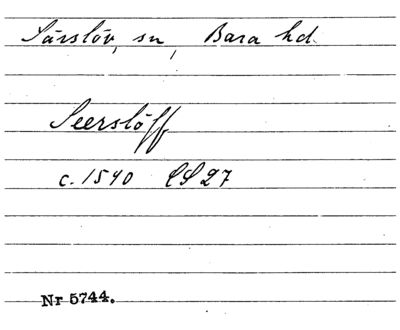 Särslöv, sn, Bara hd.
Seerslöff
c. 1540 LS 27
Nr 5744.